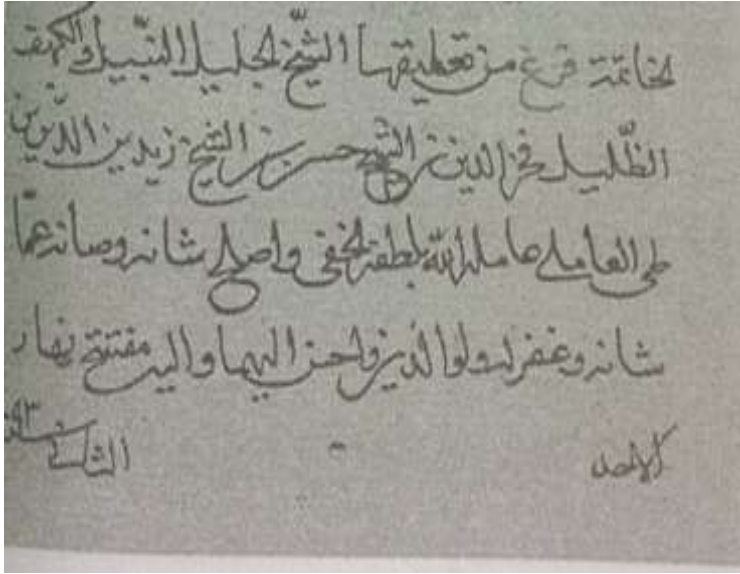 لخاتمة فرغ من تعليقها الشيخ الجليل النبيل والكهف
الظليل فخر الدين بن الشيخ حسن بن الشيخ زين الدين
العاملي عامله الله بلطفه الخفي واصلح شانه وصانه عما
شانه وغفر له ولوالديه واحسن اليهما واليه مفتتح نهار